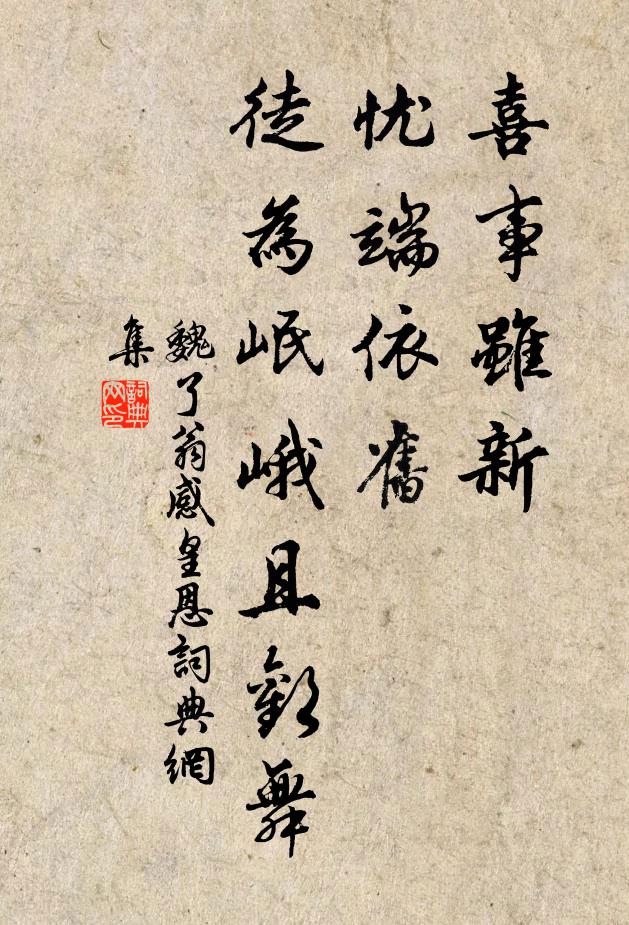 喜事雖新
忧端依舊
徒為岷峨且歡舞
魏了翁感皇恩詞典網
集
詞典
网印